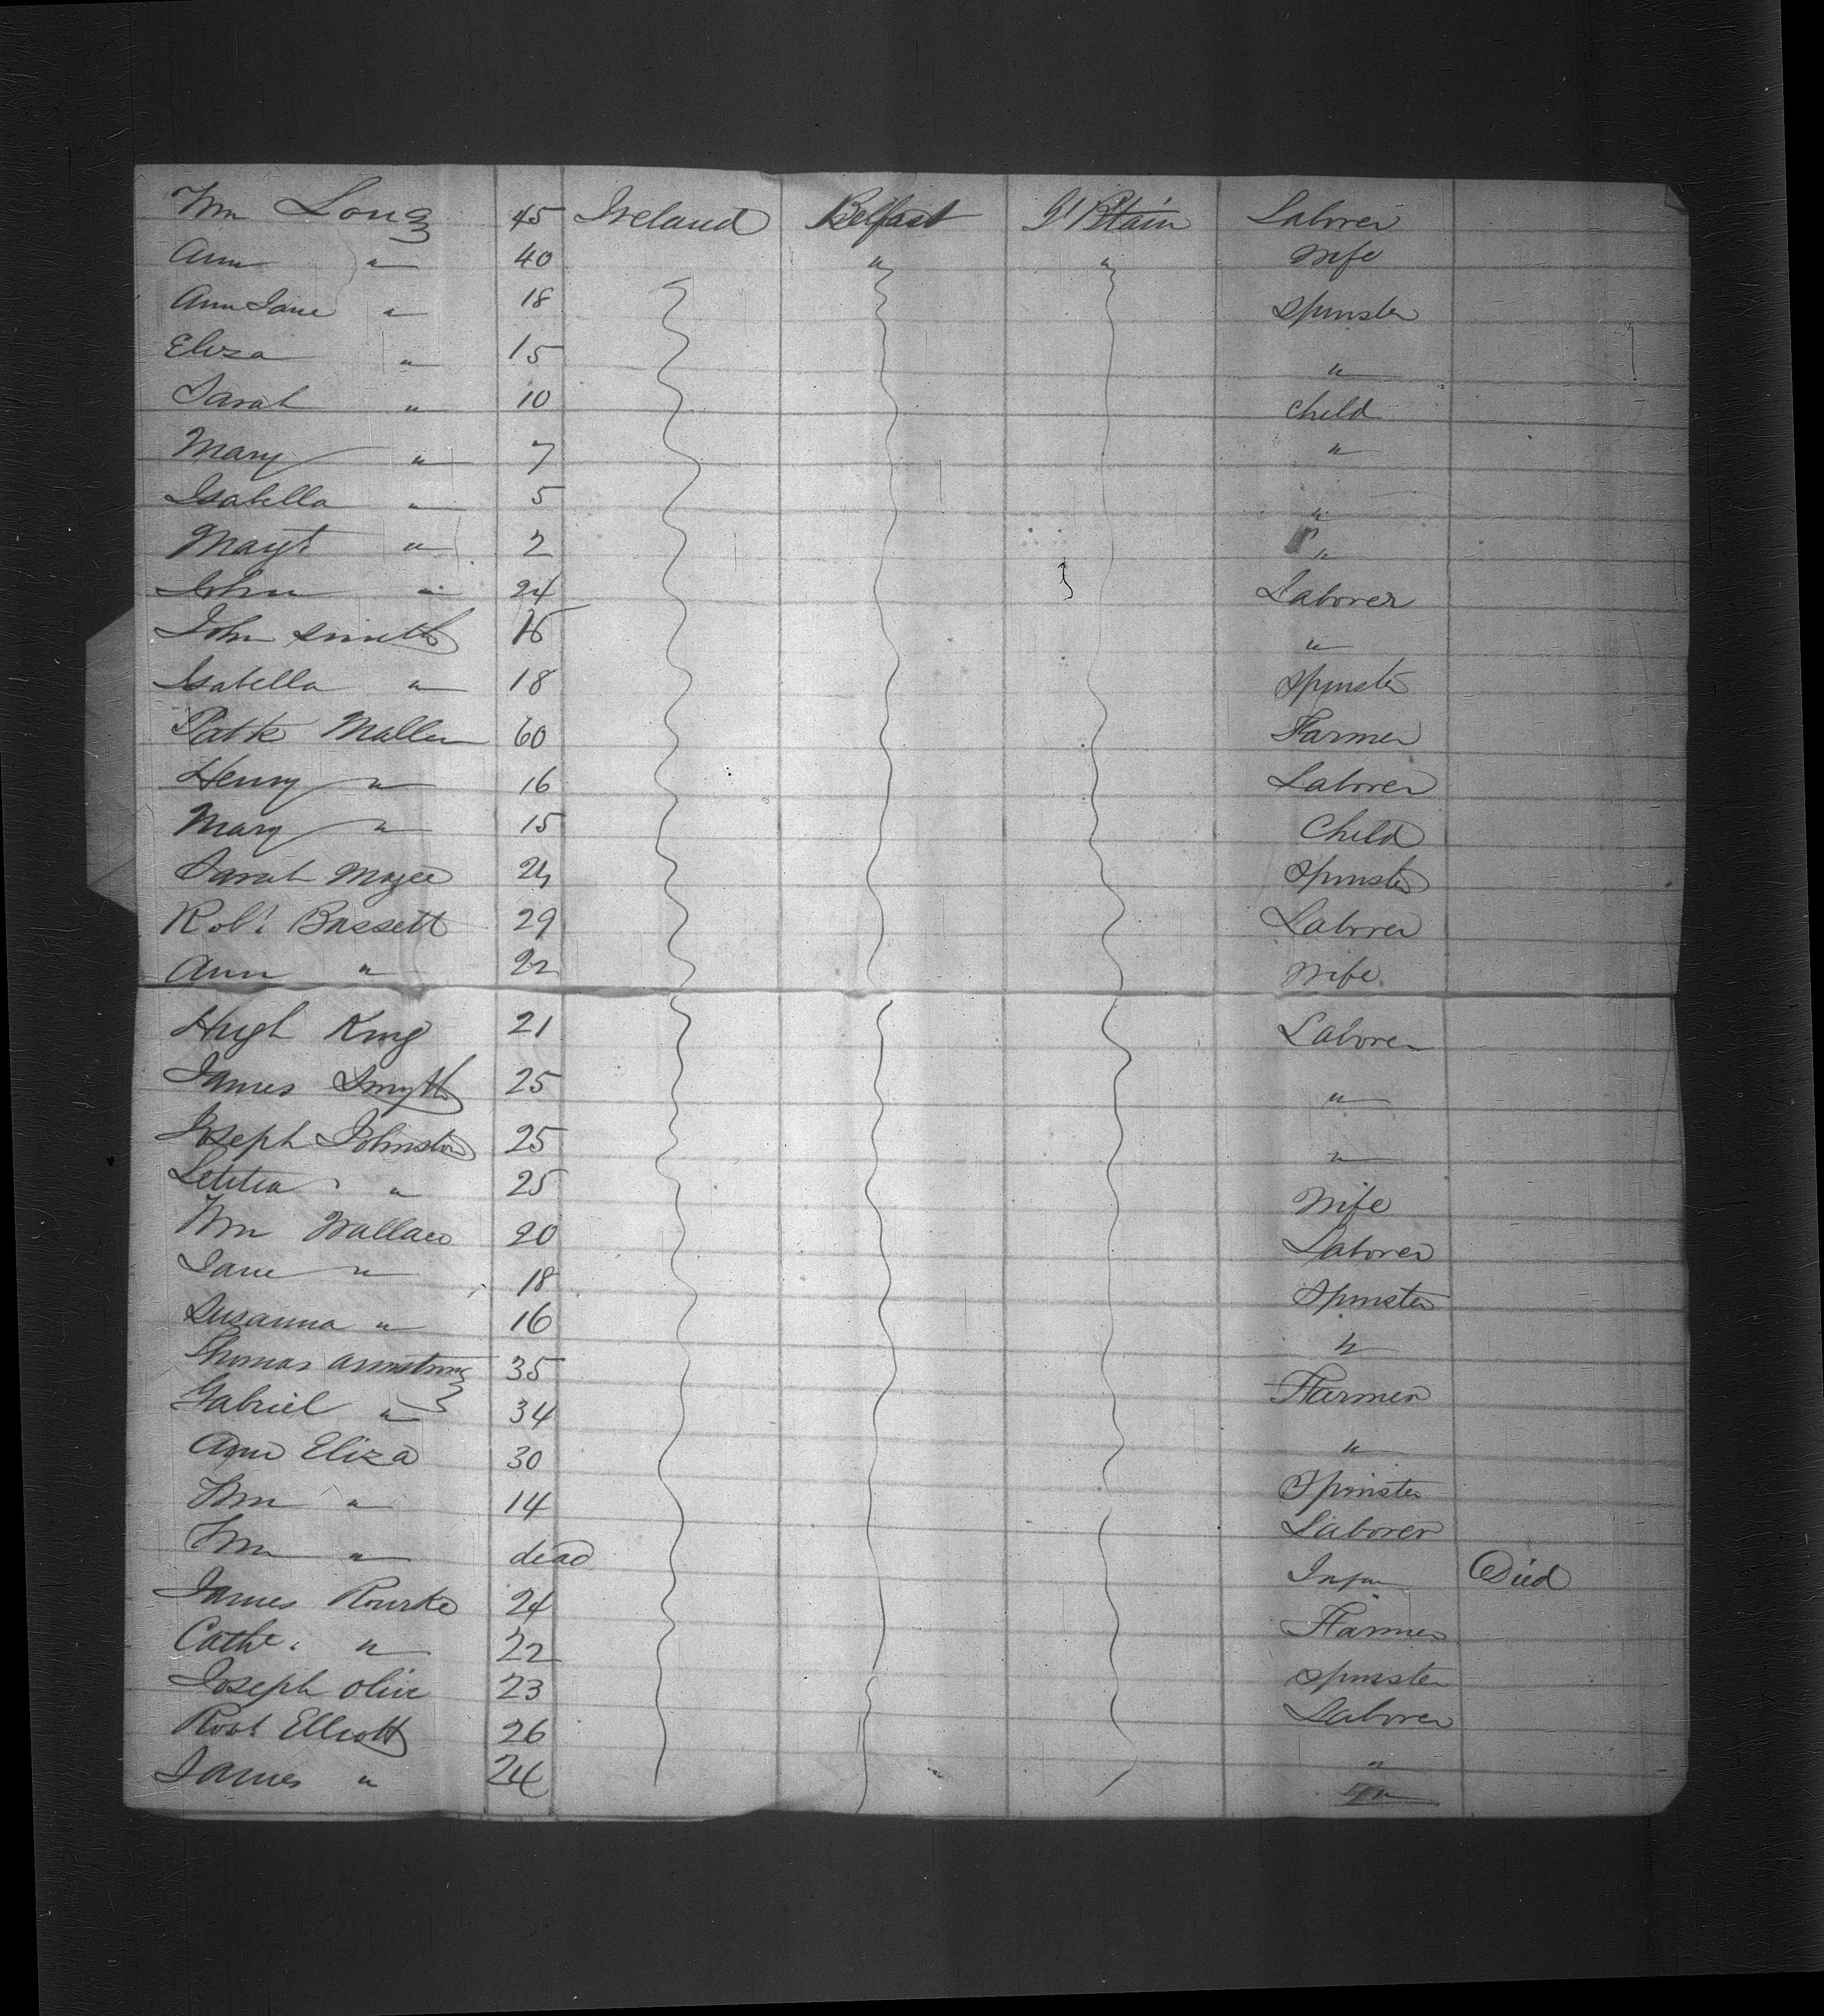 Wm Long 45 Ireland Belfast Gt Britain Laborer
Ann " 40 " " Wife
Ann Jane " 18 Spinster
Eliza " 15 "
Sarah " 10 Child
Mary " 7 "
Isabella " 5 "
Margt " 2 "
John " 24 Laborer
John Smith "
Isabella " 18 Spinster
Patk Mallen 60 Farmer
Henry " 16 Laborer
Mary " 15 Child
Sarah Magee 24 Spinster
Robt Bassett 29 Laborer
Ann " 22 Wife
Hugh King 21 Laborer
James Smyth 25 "
Joseph Johnston 25 "
Letitia " 25 Wife
Wm Wallace 20 Laborer
Jane " 18 Spinster
Susanna " 16 "
Thomas Armstrong 35 Farmer
Gabriel " 34 "
Ann Eliza 30 Spinster
Wm " 14 Laborer
Wm " dead Infn Died
James Rourke 24 Farmer
Cathe. " 22 Spinster
Joseph Olive 23 Laborer
Robt Elliott 26 "
James " 24 "